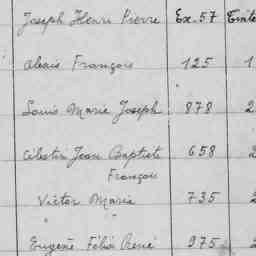 Joseph Henri Pierre Ex. 57
Alexis François 125 1
Louis Marie Joseph 878 2
Célestin Jean Baptiste 658 2
François
Victor Marie 735 2
Eugène Félix René 975 2